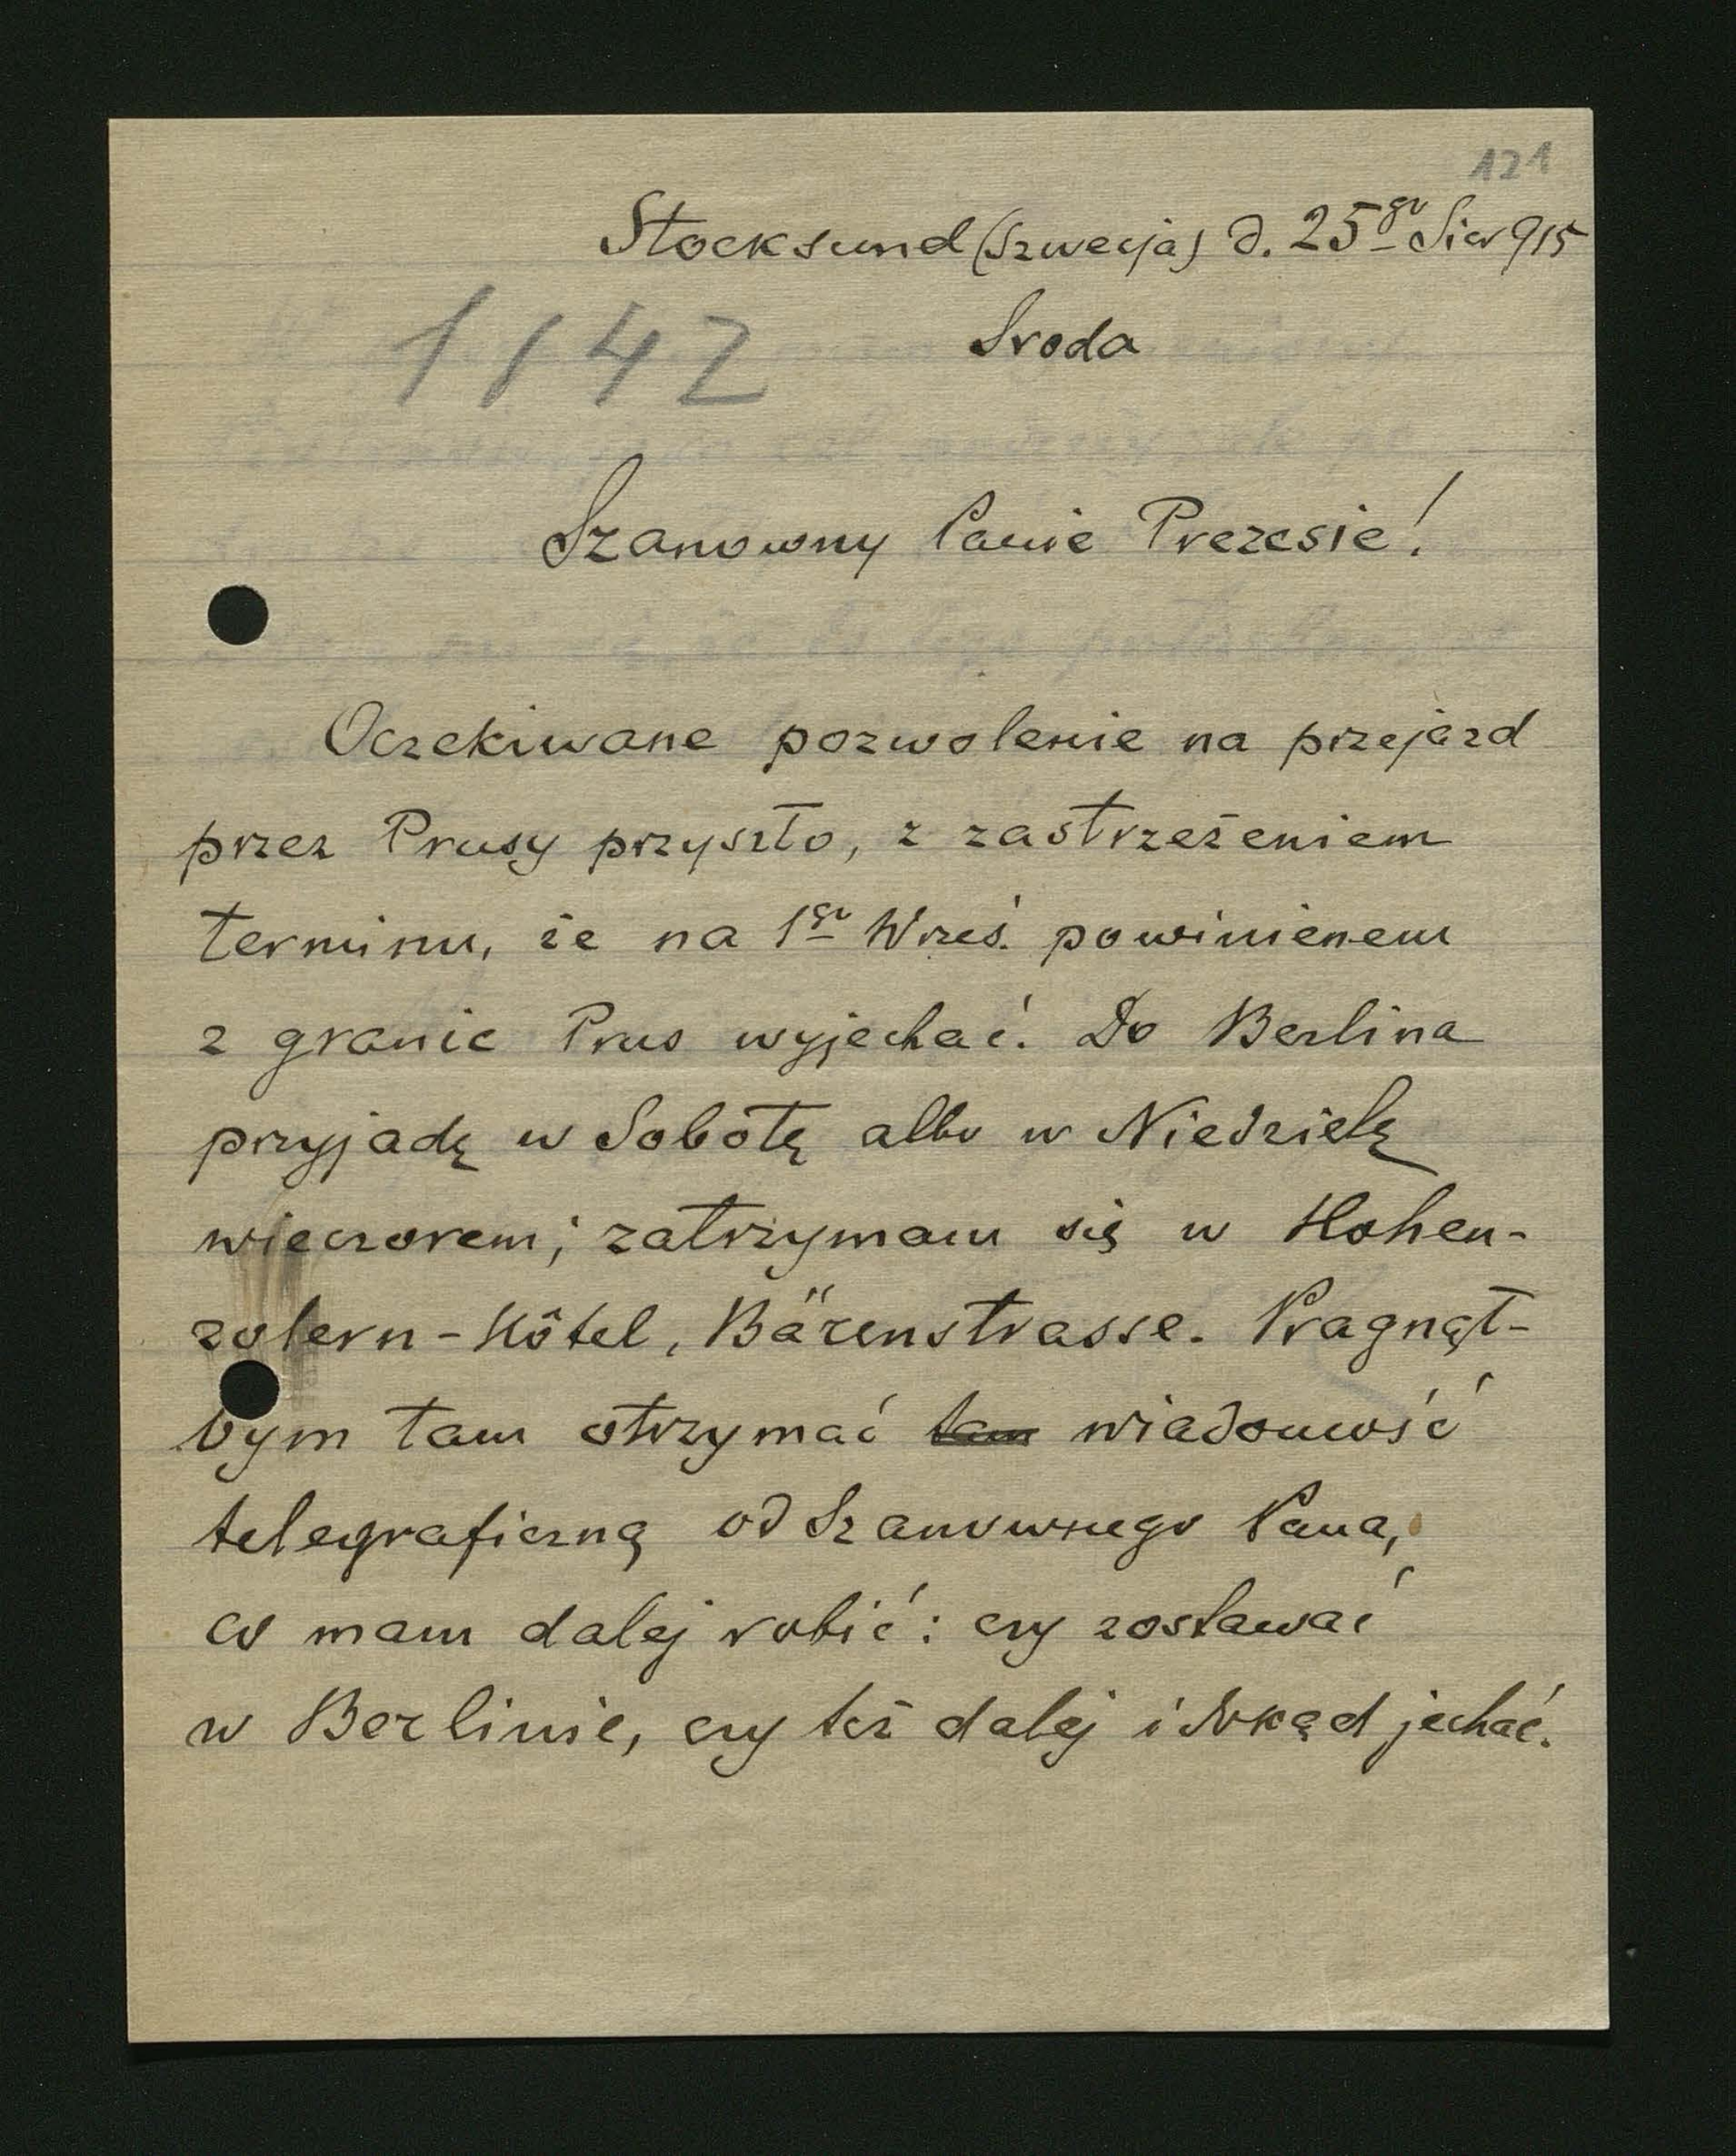 121
Stocksund (Szwecja) d. 25go Sier 915
1142
Sroda
Szanowny Panie Prezesie!
Oczekiwane pozwolenie na przejazd
przez Prusy przyszło, z zastrzeżeniem
terminu, że na 1go Wrześ. powinienem
z granic Prus wyjechać. Do Berlina
przyjadę w Sobotę albo w Niedzielę
wieczorem; zatrzymam się w Hohen-
zolern-Hôtel, Bärenstrasse. Pragnął-
bym tam otrzymać tam wiadomość
telegraficzną od Szanownego Pana,
co mam dalej robić: czy zostawać
w Berlinie, czy też dalej i dokąd jechać.